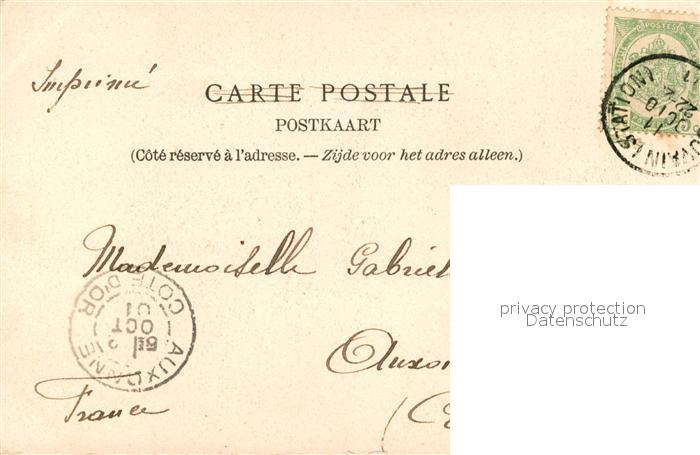 Imprimé
CARTE POSTALE
POSTKAART
(Côté réservé à l'adresse. — Zijde voor het adres alleen.)
(STATION)
11
OCTO
22-4
privacy protection
Datenschutz
Mademoiselle Gabriel
AUXONNE
COTE D'OR
OCT
01
Auxon
France
(C